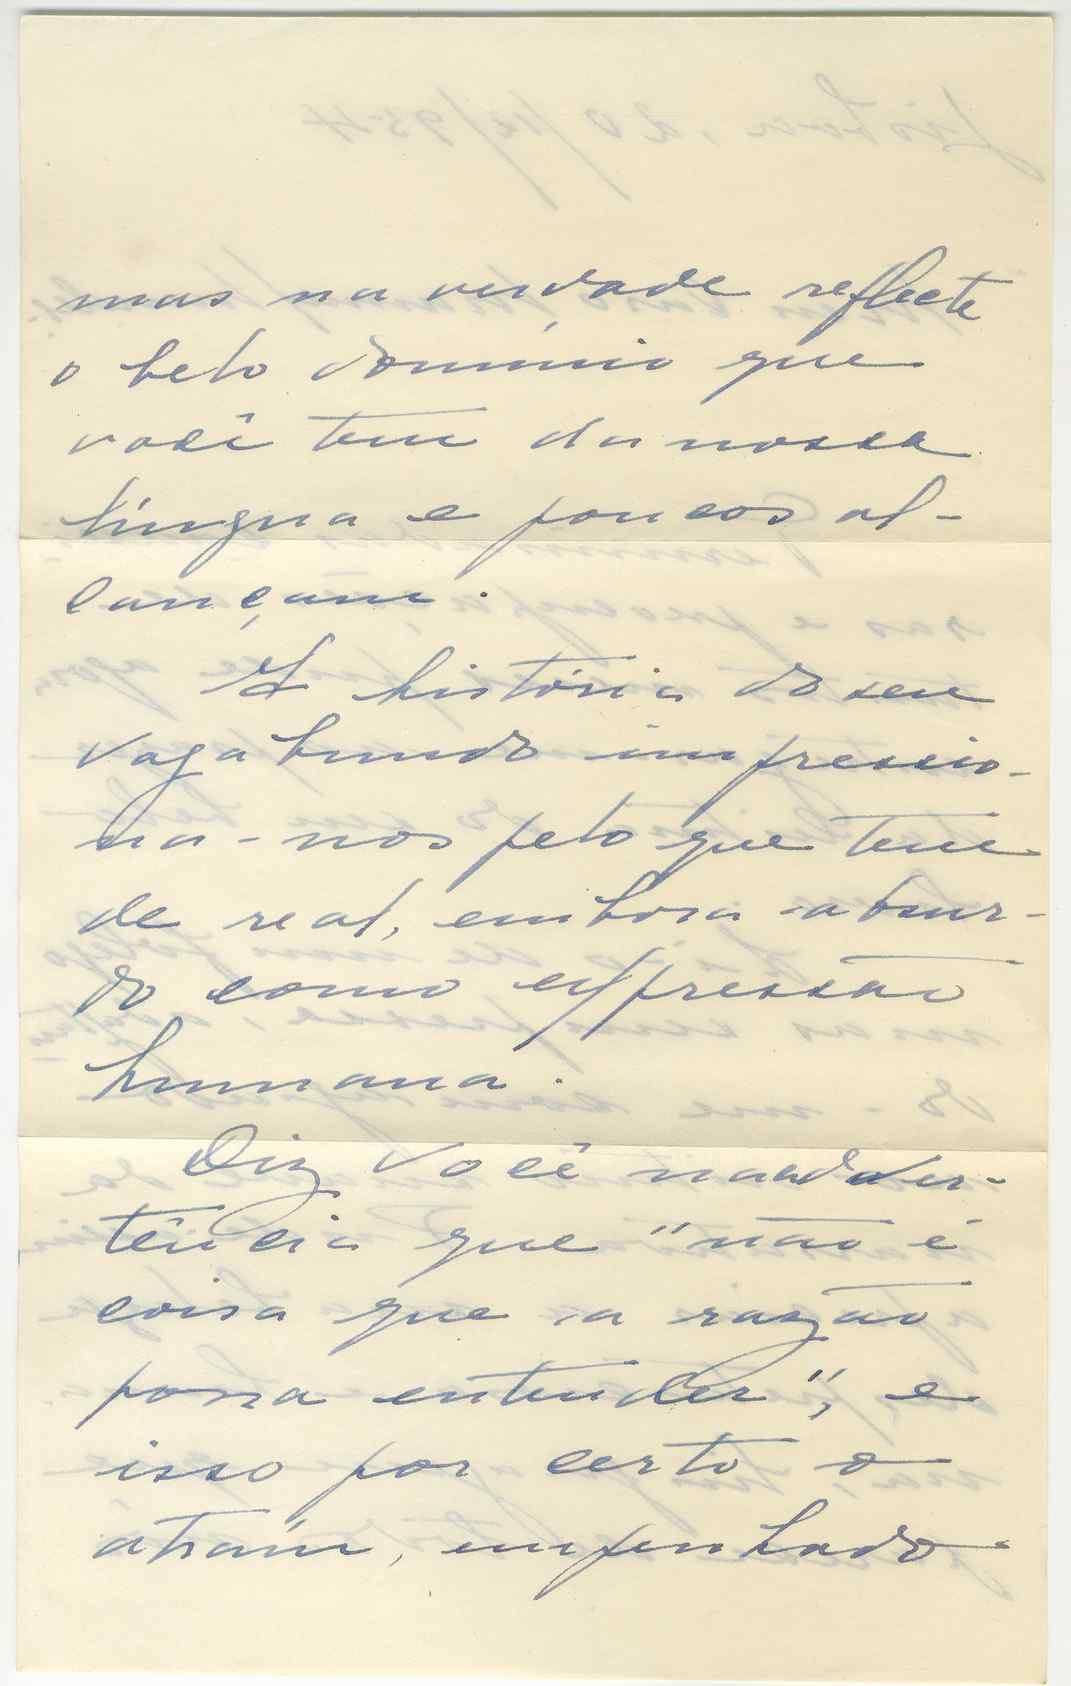 mas na verdade reflecte
o belo domínio que
você tem da nossa
língua e poucos al-
cançam.
A história do seu
vagabundo impressio-
na-nos pelo que tem
de real, embora absur-
do como expressão
humana.
Diz você na adver-
tência que "não é
coisa que a razão
possa entender", e
isso por certo o
atraíu, empenhado